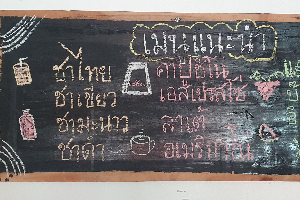 เมนูแนะนำ
ชาไทย
ชาเขียว
ชามะนาว
ชาดำ
คาปูชิโน่
เอสเปรสโซ่
ลาเต้
อเมริกาโน